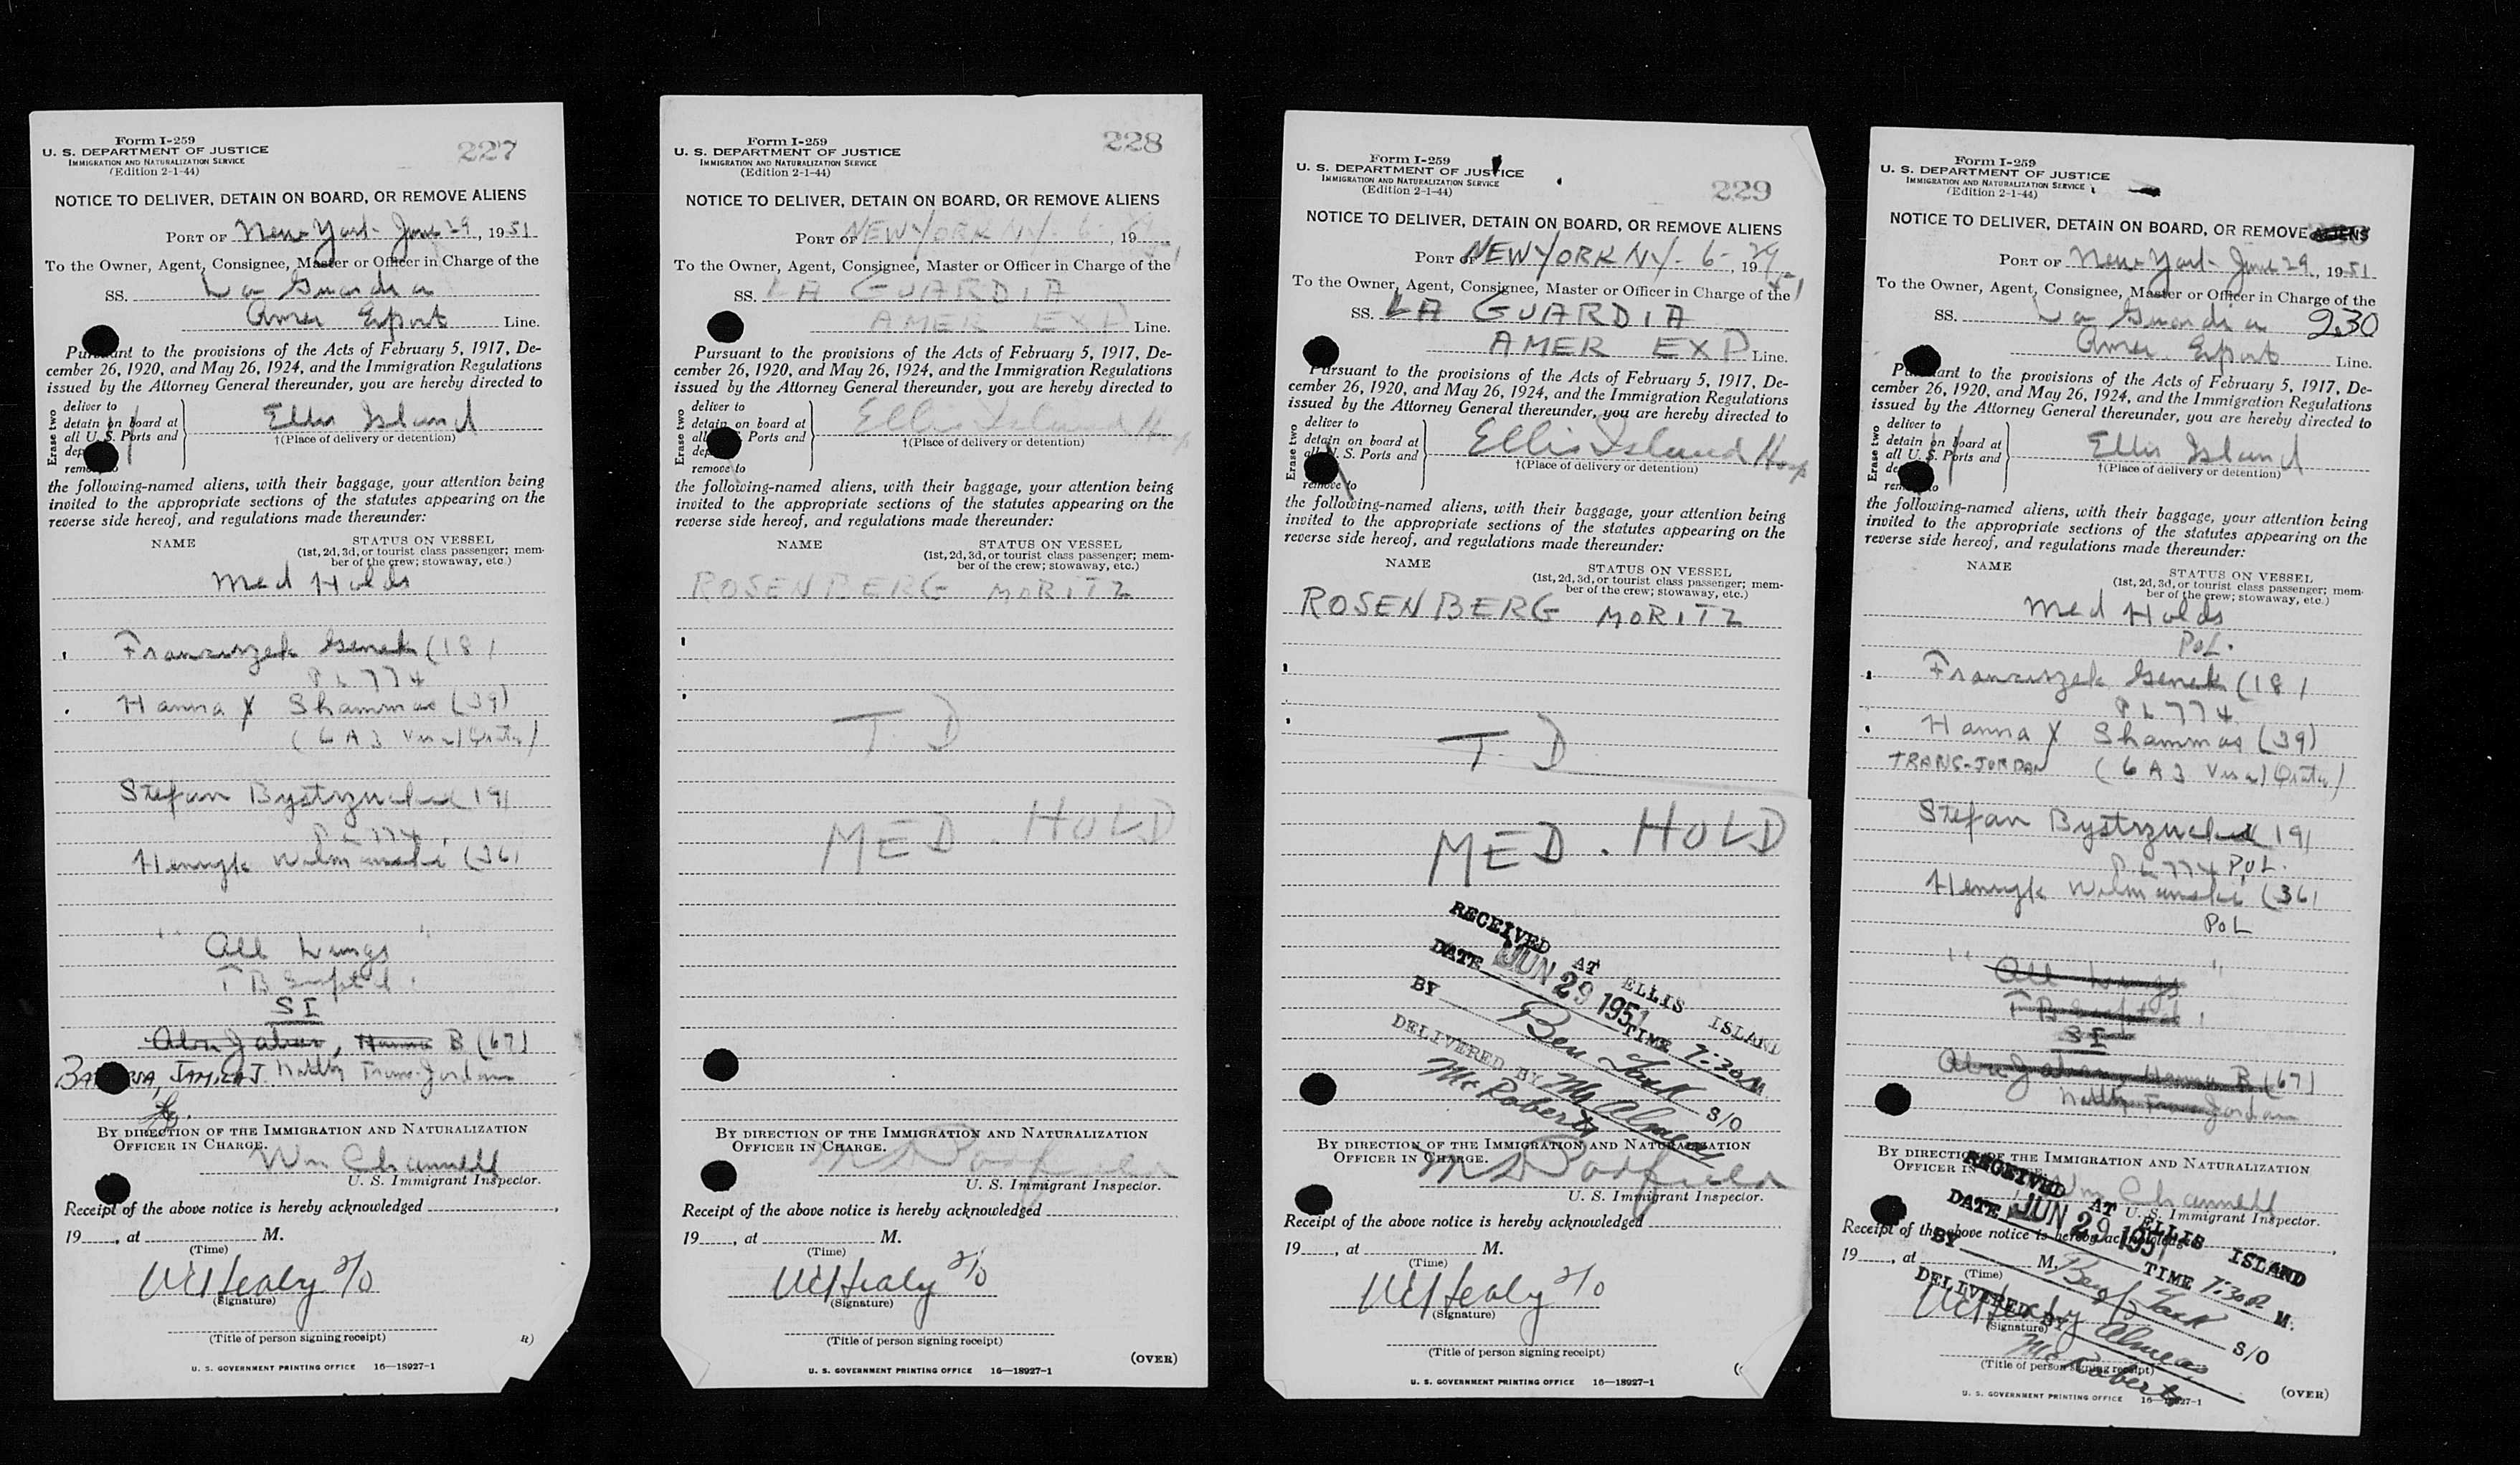 Form I-259
U. S. DEPARTMENT OF JUSTICE
IMMIGRATION AND NATURALIZATION SERVICE
(Edition 2-1-44)
227
NOTICE TO DELIVER, DETAIN ON BOARD, OR REMOVE ALIENS
PORT OF New York - June 29, 1951
To the Owner, Agent, Consignee, Master or Officer in Charge of the
SS. La Guardia
Amer Export Line.
Pursuant to the provisions of the Acts of February 5, 1917, De-
cember 26, 1920, and May 26, 1924, and the Immigration Regulations
issued by the Attorney General thereunder, you are hereby directed to
Erase two
deliver to
detain on board at
all U. S. Ports and
remove to
Ellis Island
†(Place of delivery or detention)
the following-named aliens, with their baggage, your attention being
invited to the appropriate sections of the statutes appearing on the
reverse side hereof, and regulations made thereunder:
NAME
STATUS ON VESSEL
(1st, 2d, 3d, or tourist class passenger; mem-
ber of the crew; stowaway, etc.)
Med Holds
Franciszek Genek (18)
PL 774
Hanna Y Shammas (39)
(6A3 Visa)
Stefan (19)
PL 774
Henryk (36)
" All Lungs "
TB
SI
Hanna B (67)
JAMILA J. Natlty Trans-Jordan
BY DIRECTION OF THE IMMIGRATION AND NATURALIZATION
OFFICER IN CHARGE.
Wm Channell
U. S. Immigrant Inspector.
Receipt of the above notice is hereby acknowledged
19, at M.
(Time)
Healy 2/0
(Signature)
(Title of person signing receipt)
R)
U. S. GOVERNMENT PRINTING OFFICE 16—18927-1
Form I-259
U. S. DEPARTMENT OF JUSTICE
IMMIGRATION AND NATURALIZATION SERVICE
(Edition 2-1-44)
228
NOTICE TO DELIVER, DETAIN ON BOARD, OR REMOVE ALIENS
PORT OF NEW YORK NY - 6 - 29, 1951
To the Owner, Agent, Consignee, Master or Officer in Charge of the
SS. LA GUARDIA
AMER EXP Line.
Pursuant to the provisions of the Acts of February 5, 1917, De-
cember 26, 1920, and May 26, 1924, and the Immigration Regulations
issued by the Attorney General thereunder, you are hereby directed to
Erase two
deliver to
detain on board at
Ports and
remove to
Ellis Island Hosp
†(Place of delivery or detention)
the following-named aliens, with their baggage, your attention being
invited to the appropriate sections of the statutes appearing on the
reverse side hereof, and regulations made thereunder:
NAME
STATUS ON VESSEL
(1st, 2d, 3d, or tourist class passenger; mem-
ber of the crew; stowaway, etc.)
ROSENBERG MORITZ
T. D
MED. HOLD
BY DIRECTION OF THE IMMIGRATION AND NATURALIZATION
OFFICER IN CHARGE.
U. S. Immigrant Inspector.
Receipt of the above notice is hereby acknowledged
19, at M.
(Time)
Healy 2/0
(Signature)
(Title of person signing receipt)
(OVER)
U. S. GOVERNMENT PRINTING OFFICE 16—18927-1
Form I-259
U. S. DEPARTMENT OF JUSTICE
IMMIGRATION AND NATURALIZATION SERVICE
(Edition 2-1-44)
229
NOTICE TO DELIVER, DETAIN ON BOARD, OR REMOVE ALIENS
PORT OF NEW YORK NY - 6 - 29, 1951
To the Owner, Agent, Consignee, Master or Officer in Charge of the
SS. LA GUARDIA
AMER EXP Line.
Pursuant to the provisions of the Acts of February 5, 1917, De-
cember 26, 1920, and May 26, 1924, and the Immigration Regulations
issued by the Attorney General thereunder, you are hereby directed to
Erase two
deliver to
detain on board at
S. Ports and
remove to
Ellis Island Hosp
†(Place of delivery or detention)
the following-named aliens, with their baggage, your attention being
invited to the appropriate sections of the statutes appearing on the
reverse side hereof, and regulations made thereunder:
NAME
STATUS ON VESSEL
(1st, 2d, 3d, or tourist class passenger; mem-
ber of the crew; stowaway, etc.)
ROSENBERG MORITZ
T. D
MED. HOLD
RECEIVED AT ELLIS ISLAND
DATE JUN 29 1951 TIME 7:30 M.
BY Ben Jack S/O
DELIVERED BY
McRoberts
BY DIRECTION OF THE IMMIGRATION AND NATURALIZATION
OFFICER IN CHARGE.
U. S. Immigrant Inspector.
Receipt of the above notice is hereby acknowledged
19, at M.
(Time)
Healy 2/0
(Signature)
(Title of person signing receipt)
U. S. GOVERNMENT PRINTING OFFICE 16—18927-1
Form I-259
U. S. DEPARTMENT OF JUSTICE
IMMIGRATION AND NATURALIZATION SERVICE
(Edition 2-1-44)
NOTICE TO DELIVER, DETAIN ON BOARD, OR REMOVE ALIENS
PORT OF New York - June 29, 1951
To the Owner, Agent, Consignee, Master or Officer in Charge of the
SS. La Guardia 230
Amer Export Line.
Pursuant to the provisions of the Acts of February 5, 1917, De-
cember 26, 1920, and May 26, 1924, and the Immigration Regulations
issued by the Attorney General thereunder, you are hereby directed to
Erase two
deliver to
detain on board at
all U. S. Ports and
remove to
Ellis Island
†(Place of delivery or detention)
the following-named aliens, with their baggage, your attention being
invited to the appropriate sections of the statutes appearing on the
reverse side hereof, and regulations made thereunder:
NAME
STATUS ON VESSEL
(1st, 2d, 3d, or tourist class passenger; mem-
ber of the crew; stowaway, etc.)
Med Holds
POL.
Franciszek Genek (18)
PL 774
Hanna Y Shammas (39)
TRANS-JORDAN (6A3 Visa)
Stefan (19)
PL 774 POL.
Henryk (36)
POL
" All Lungs "
TB
SI
Hanna B (67)
Natlty Trans-Jordan
BY DIRECTION OF THE IMMIGRATION AND NATURALIZATION
OFFICER IN
Wm Channell
U. S. Immigrant Inspector.
Receipt of the above notice is hereby acknowledged
19, at M.
(Time)
RECEIVED AT ELLIS ISLAND
DATE JUN 29 1951 TIME 7:30 M.
BY Jack S/O
DELIVERED BY
McRoberts
Healy
(Signature)
(Title of person signing receipt)
(OVER)
U. S. GOVERNMENT PRINTING OFFICE 16—18927-1